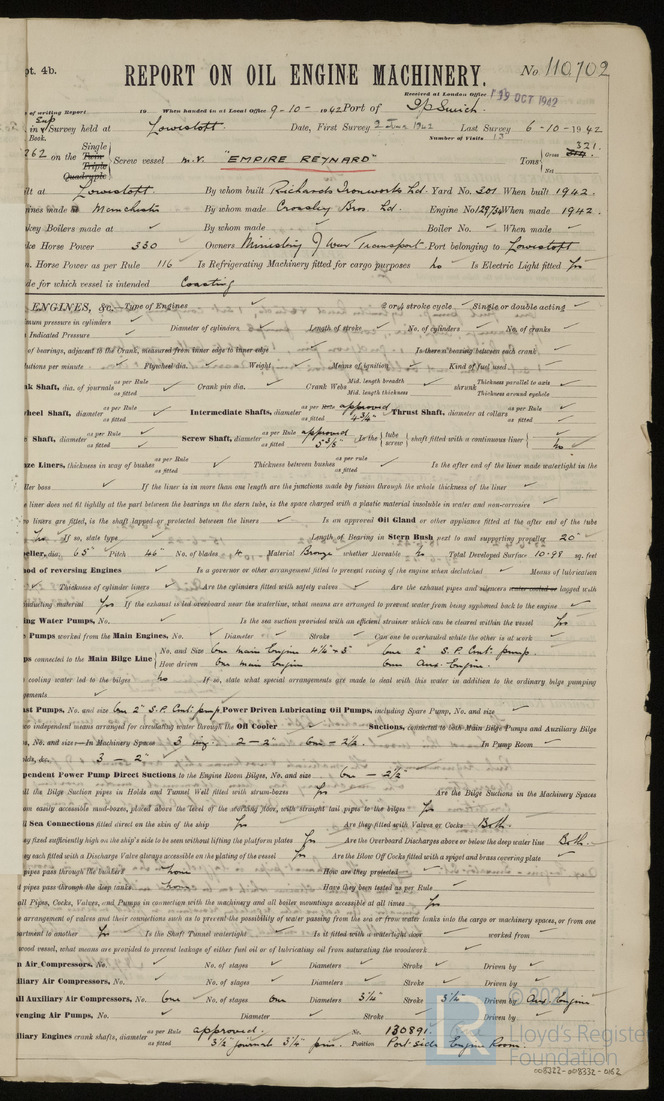 pt. 4b.
REPORT ON OIL ENGINE MACHINERY.
No 110702
Received at London Office 19 OCT 1942
of writing Report 19 When handed in at Local Office 9-10-1942 Port of Ipswich
in Survey held at Lowestoft Date, First Survey 2 June 1942 Last Survey 6-10-1942
Book.
Number of Visits
262 on the Single Twin Triple Quadruple Screw vessel M.V. "EMPIRE REYNARD" Tons Gross 321. Net
lt at Lowestoft By whom built Richards Ironworks Ld. Yard No. 301 When built 1942.
ines made at Manchester By whom made Crossley Bros. Ld. Engine No 129734 When made 1942.
key Boilers made at By whom made Boiler No. When made
ke Horse Power 330 Owners Ministry of War Transport Port belonging to Lowestoft
. Horse Power as per Rule 116 Is Refrigerating Machinery fitted for cargo purposes no Is Electric Light fitted Yes
de for which vessel is intended Coasting
ENGINES, &c. Type of Engines 2 or 4 stroke cycle Single or double acting
mum pressure in cylinders Diameter of cylinders Length of stroke No. of cylinders No. of cranks
Indicated Pressure
of bearings, adjacent to the Crank, measured from inner edge to inner edge Is there a bearing between each crank
utions per minute Flywheel dia. Weight Means of ignition Kind of fuel used
nk Shaft, dia. of journals as per Rule as fitted Crank pin dia. Crank Webs Mid. length breadth Mid. length thickness shrunk Thickness parallel to axis Thickness around eyehole
heel Shaft, diameter as per Rule as fitted Intermediate Shafts, diameter as per Rule approved as fitted 4 3/4" Thrust Shaft, diameter at collars as per Rule as fitted
Shaft, diameter as per Rule as fitted Screw Shaft, diameter as per Rule approved as fitted 5 3/8" Is the tube screw shaft fitted with a continuous liner no
ze Liners, thickness in way of bushes as per Rule as fitted Thickness between bushes as per rule as fitted Is the after end of the liner made watertight in the
ller boss If the liner is in more than one length are the junctions made by fusion through the whole thickness of the liner
e liner does not fit tightly at the part between the bearings in the stern tube, is the space charged with a plastic material insoluble in water and non-corrosive
o liners are fitted, is the shaft lapped or protected between the liners Is an approved Oil Gland or other appliance fitted at the after end of the tube
no If so, state type Length of Bearing in Stern Bush next to and supporting propeller 20"
eller, dia. 65" Pitch 46" No. of blades 4 Material Bronze whether Moveable no Total Developed Surface 10.98 sq. feet
hod of reversing Engines Is a governor or other arrangement fitted to prevent racing of the engine when declutched Means of lubrication
Thickness of cylinder liners Are the cylinders fitted with safety valves Are the exhaust pipes and silencers water cooled or lagged with
nducting material Yes If the exhaust is led overboard near the waterline, what means are arranged to prevent water from being syphoned back to the engine
ing Water Pumps, No. Is the sea suction provided with an efficient strainer which can be cleared within the vessel Yes
Pumps worked from the Main Engines, No. Diameter Stroke Can one be overhauled while the other is at work
ps connected to the Main Bilge Line No. and Size One main Engine 4 1/4" x 5" One 2" S.P. Cent. pump.
How driven One main Engine One Aux. Engine.
cooling water led to the bilges no If so, state what special arrangements are made to deal with this water in addition to the ordinary bilge pumping
gements
ast Pumps, No. and size One 2" S.P. Cent. pump. Power Driven Lubricating Oil Pumps, including Spare Pump, No. and size
wo independent means arranged for circulating water through the Oil Cooler Suctions, connected to both Main Bilge Pumps and Auxiliary Bilge
s, No. and size:—In Machinery Spaces 3 2 - 2" One - 2 1/2" In Pump Room
lds, &c. 3 - 2"
pendent Power Pump Direct Suctions to the Engine Room Bilges, No. and size One - 2 1/2"
ll the Bilge Suction pipes in Holds and Tunnel Well fitted with strum-boxes Yes Are the Bilge Suctions in the Machinery Spaces
om easily accessible mud-boxes, placed above the level of the working floor, with straight tail pipes to the bilges Yes
ll Sea Connections fitted direct on the skin of the ship Yes Are they fitted with Valves or Cocks Both
ey fixed sufficiently high on the ship's side to be seen without lifting the platform plates Yes Are the Overboard Discharges above or below the deep water line Both
ey each fitted with a Discharge Valve always accessible on the plating of the vessel Yes Are the Blow Off Cocks fitted with a spigot and brass covering plate
pipes pass through the bunkers None How are they protected
pipes pass through the deep tanks None Have they been tested as per Rule
ll Pipes, Cocks, Valves, and Pumps in connection with the machinery and all boiler mountings accessible at all times Yes
e arrangement of valves and their connections such as to prevent the possibility of water passing from the sea or from water tanks into the cargo or machinery spaces, or from one
artment to another Yes Is the Shaft Tunnel watertight Is it fitted with a watertight door worked from
wood vessel, what means are provided to prevent leakage of either fuel oil or of lubricating oil from saturating the woodwork
n Air Compressors, No. No. of stages Diameters Stroke Driven by
iliary Air Compressors, No. No. of stages Diameters Stroke Driven by
all Auxiliary Air Compressors, No. One No. of stages One Diameters 3 1/4" Stroke 3 1/4" Driven by Aux. Engine
venging Air Pumps, No. Diameter Stroke Driven by
iliary Engines crank shafts, diameter as per Rule approved. No. 130891.
as fitted 3 1/2" journals 3 1/4" pins. Position Port side Engine Room.
© 2021
Lloyd's Register
Foundation
008322-008332-0162